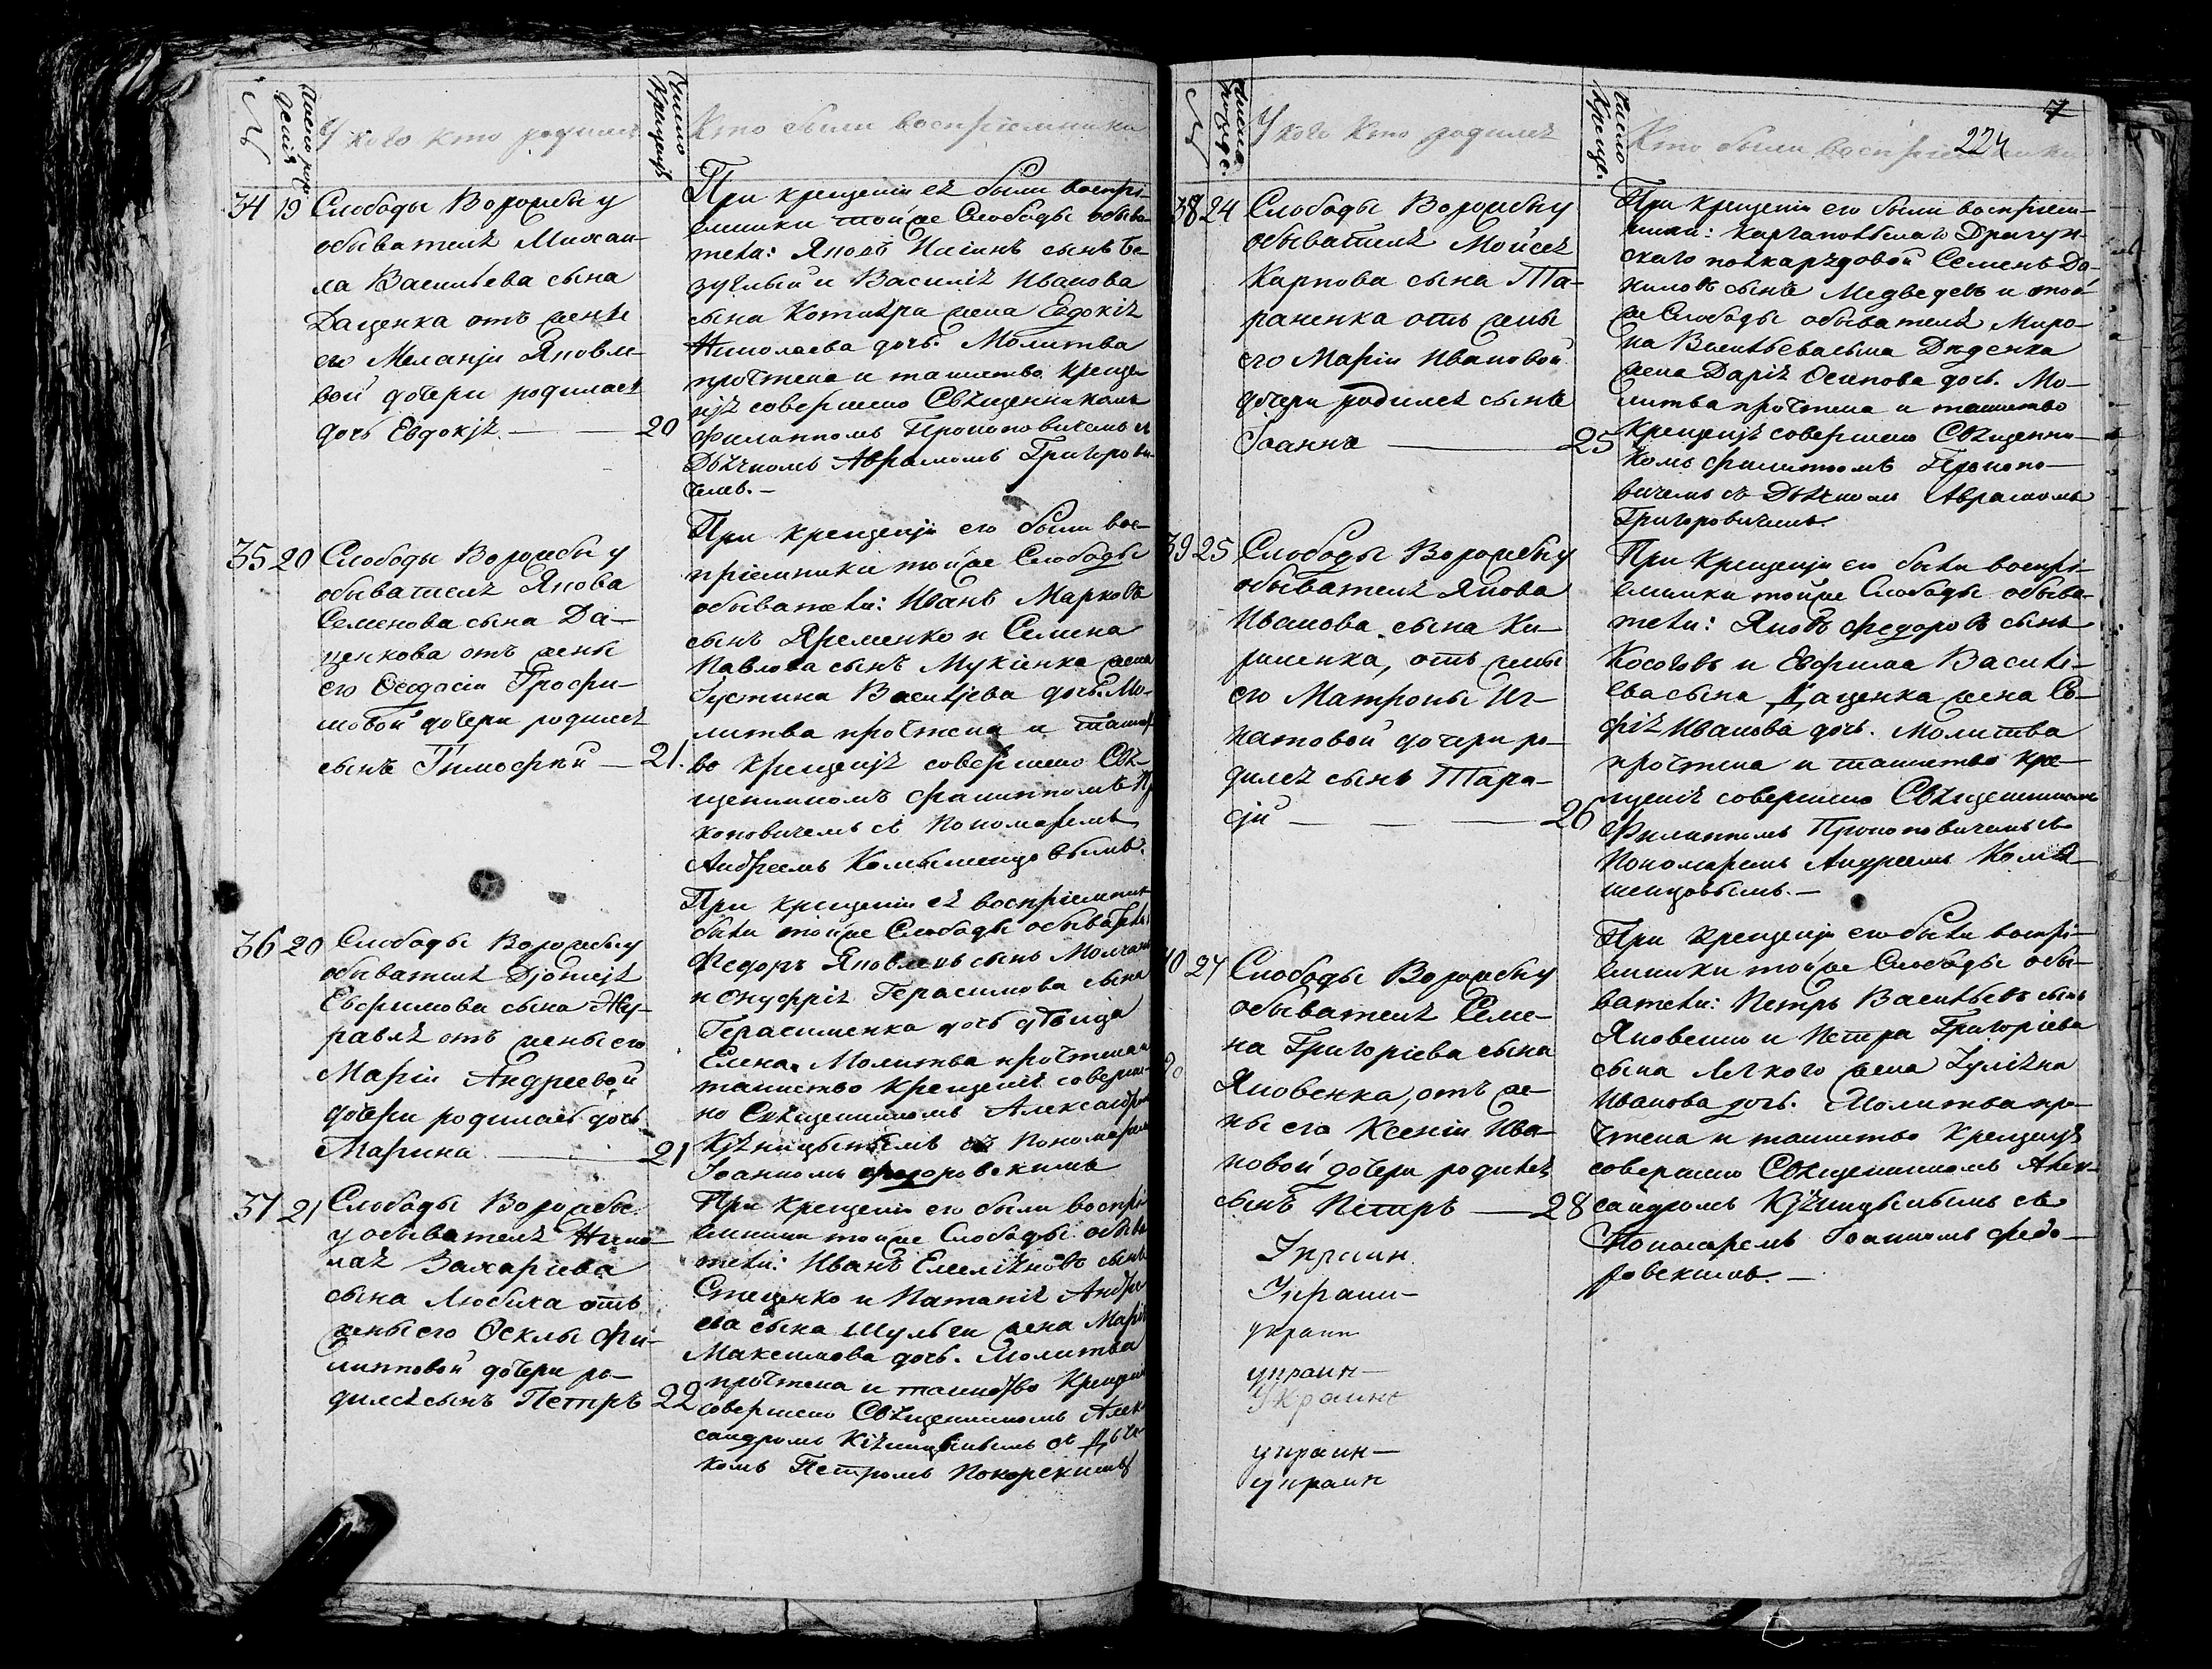 №
Число рож
денія
У кого кто родился
Число
Крещенія
Кто были воспріемники
34 19 Слободы Ворожбы у
обывателя Михаи-
ла Васильева сына
Даценка отъ жены
его Меланіи Яковле-
вой дочери родилась
дочь Евдокія. — 20
При крещеніи ея были воспрі-
емники той же Слободы обыва-
тели: Яковъ сынъ
и Василія Иванова
сына жена Евдокія
Николаева дочь. Молитва
прочтена и таинство креще-
нія совершено Священникомъ
Филиппомъ Прокоповичемъ съ
Дьячкомъ Аврамомъ Григорови-
чемъ. —
35 20 Слободы Ворожбы у
обывателя Якова
Семенова сына Да-
ценкова отъ жены
его Ѳеодосіи Трофи-
мовой дочери родился
сынъ Тимофей — 21.
При крещеніи его были вос-
пріемники той же Слободы
обыватели: Иванъ Марковъ
сынъ Яременко и Семена
Павлова сынъ Мукіенка жена
Іустина Васильева дочь. Мо-
литва прочтена и таинст-
во крещенія совершено Свя-
щенникомъ Филиппомъ Пр
коповичемъ съ Пономаремъ
Андреемъ Камышенцовымъ.
36 20 Слободы Ворожбы у
обывателя Діонисія
Евфимова сына Жу-
равля отъ жены его
Маріи Андреевой
дочери родилась дочь
Марина — 21
При крещеніи ея воспріемник
были той же Слободы обыватели
Федоръ Яковлевъ сынъ
и Онуфрія Герасимова сына
Герасименка дочь дѣвица
Елена. Молитва прочтена и
таинство крещенія соверше-
но Священникомъ Александром
съ Пономаремъ
Іоанномъ Федоровскимъ
37 21 Слободы Ворожбы
у обывателя Нико-
лая Захарієва
сына Любика отъ
жены его Ѳеклы Фи-
липповой дочери ро-
дился сынъ Петръ 22
При крещеніи его были воспрі
емники той же Слободы обыва
тели: Иванъ Емеліяновъ сынъ
Стеценко и Наталія Андре
ева сына Шульги жена Марія
Максимова дочь. Молитва
прочтена и таинство Крещені
совершено Священникомъ Алек
сандромъ съ Дьяч-
комъ Петромъ Покорскимъ
№
Число
рожде.
У кого кто родился
Число
Креще.
Кто были воспріемники
7
224
38 24 Слободы Ворожбы у
обывателя Мойсея
Карпова сына Та-
раненка отъ жены
его Маріи Ивановой
дочери родился сынъ
Іоаннъ — 25
При крещеніи его были воспріем-
ники: Драгун-
скаго полка рядовой Семенъ Да-
ниловъ сынъ Медведевъ и той
же Слободы обывателя Миро-
на Васильева сына Диденка
жена Дарія Осипова дочь. Мо-
литва прочтена и таинство
Крещенія совершено Священни-
комъ Филиппомъ Прокопо-
вичемъ съ Дьячкомъ Аврамомъ
Григоровичемъ.
39 25 Слободы Ворожбы у
обывателя Якова
Иванова сына Ки-
риленка, отъ жены
его Матроны Иг-
натовой дочери ро-
дился сынъ Тара-
сій — 26
При Крещеніи его были воспрі-
емники той же Слободы обыва-
тели: Яковъ Федоровъ сынъ
Косоговъ и Ефима Василі-
ева сына Даценка жена Со-
фія Иванова дочь. Молитва
прочтена и таинство кре-
щенія совершено Священникомъ
Филиппомъ Прокоповичемъ съ
Пономаремъ Андреемъ Камы-
шенцовымъ. —
40 27 Слободы Ворожбы у
обывателя Семе-
на Григорієва сына
Яковенка, отъ же-
ны его Ксеніи Ива-
новой дочери родился
сынъ Петръ — 28
При Крещеніи его были воспрі-
емники той же Слободы обы-
ватели: Петръ Васильевъ сынъ
Яковенко и Петра Григорієва
сына Легкого жена Іуліяна
Иванова дочь. Молитва про-
чтена и таинство Крещенія
совершено Священникомъ Алек-
сандромъ съ
Пономаремъ Іоанномъ Федо-
ровскимъ. —
украин
украин-
Украине
украин—
украин